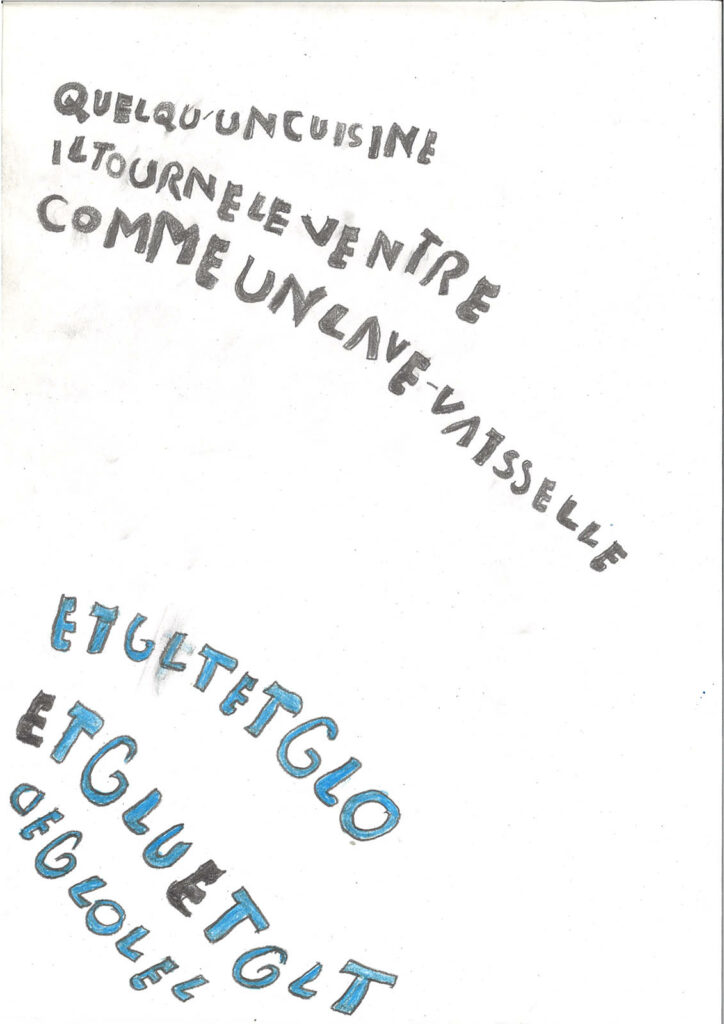 QUELQU'UN CUISINE
IL TOURNE LE VENTRE
COMME UN LAVE-VAISSELLE
ETGLTETGLO
ETGLUETGLT
DEGLOLEL